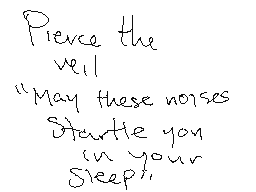 Pierce the
veil
"May these noises
Startle you
in your
Sleep"